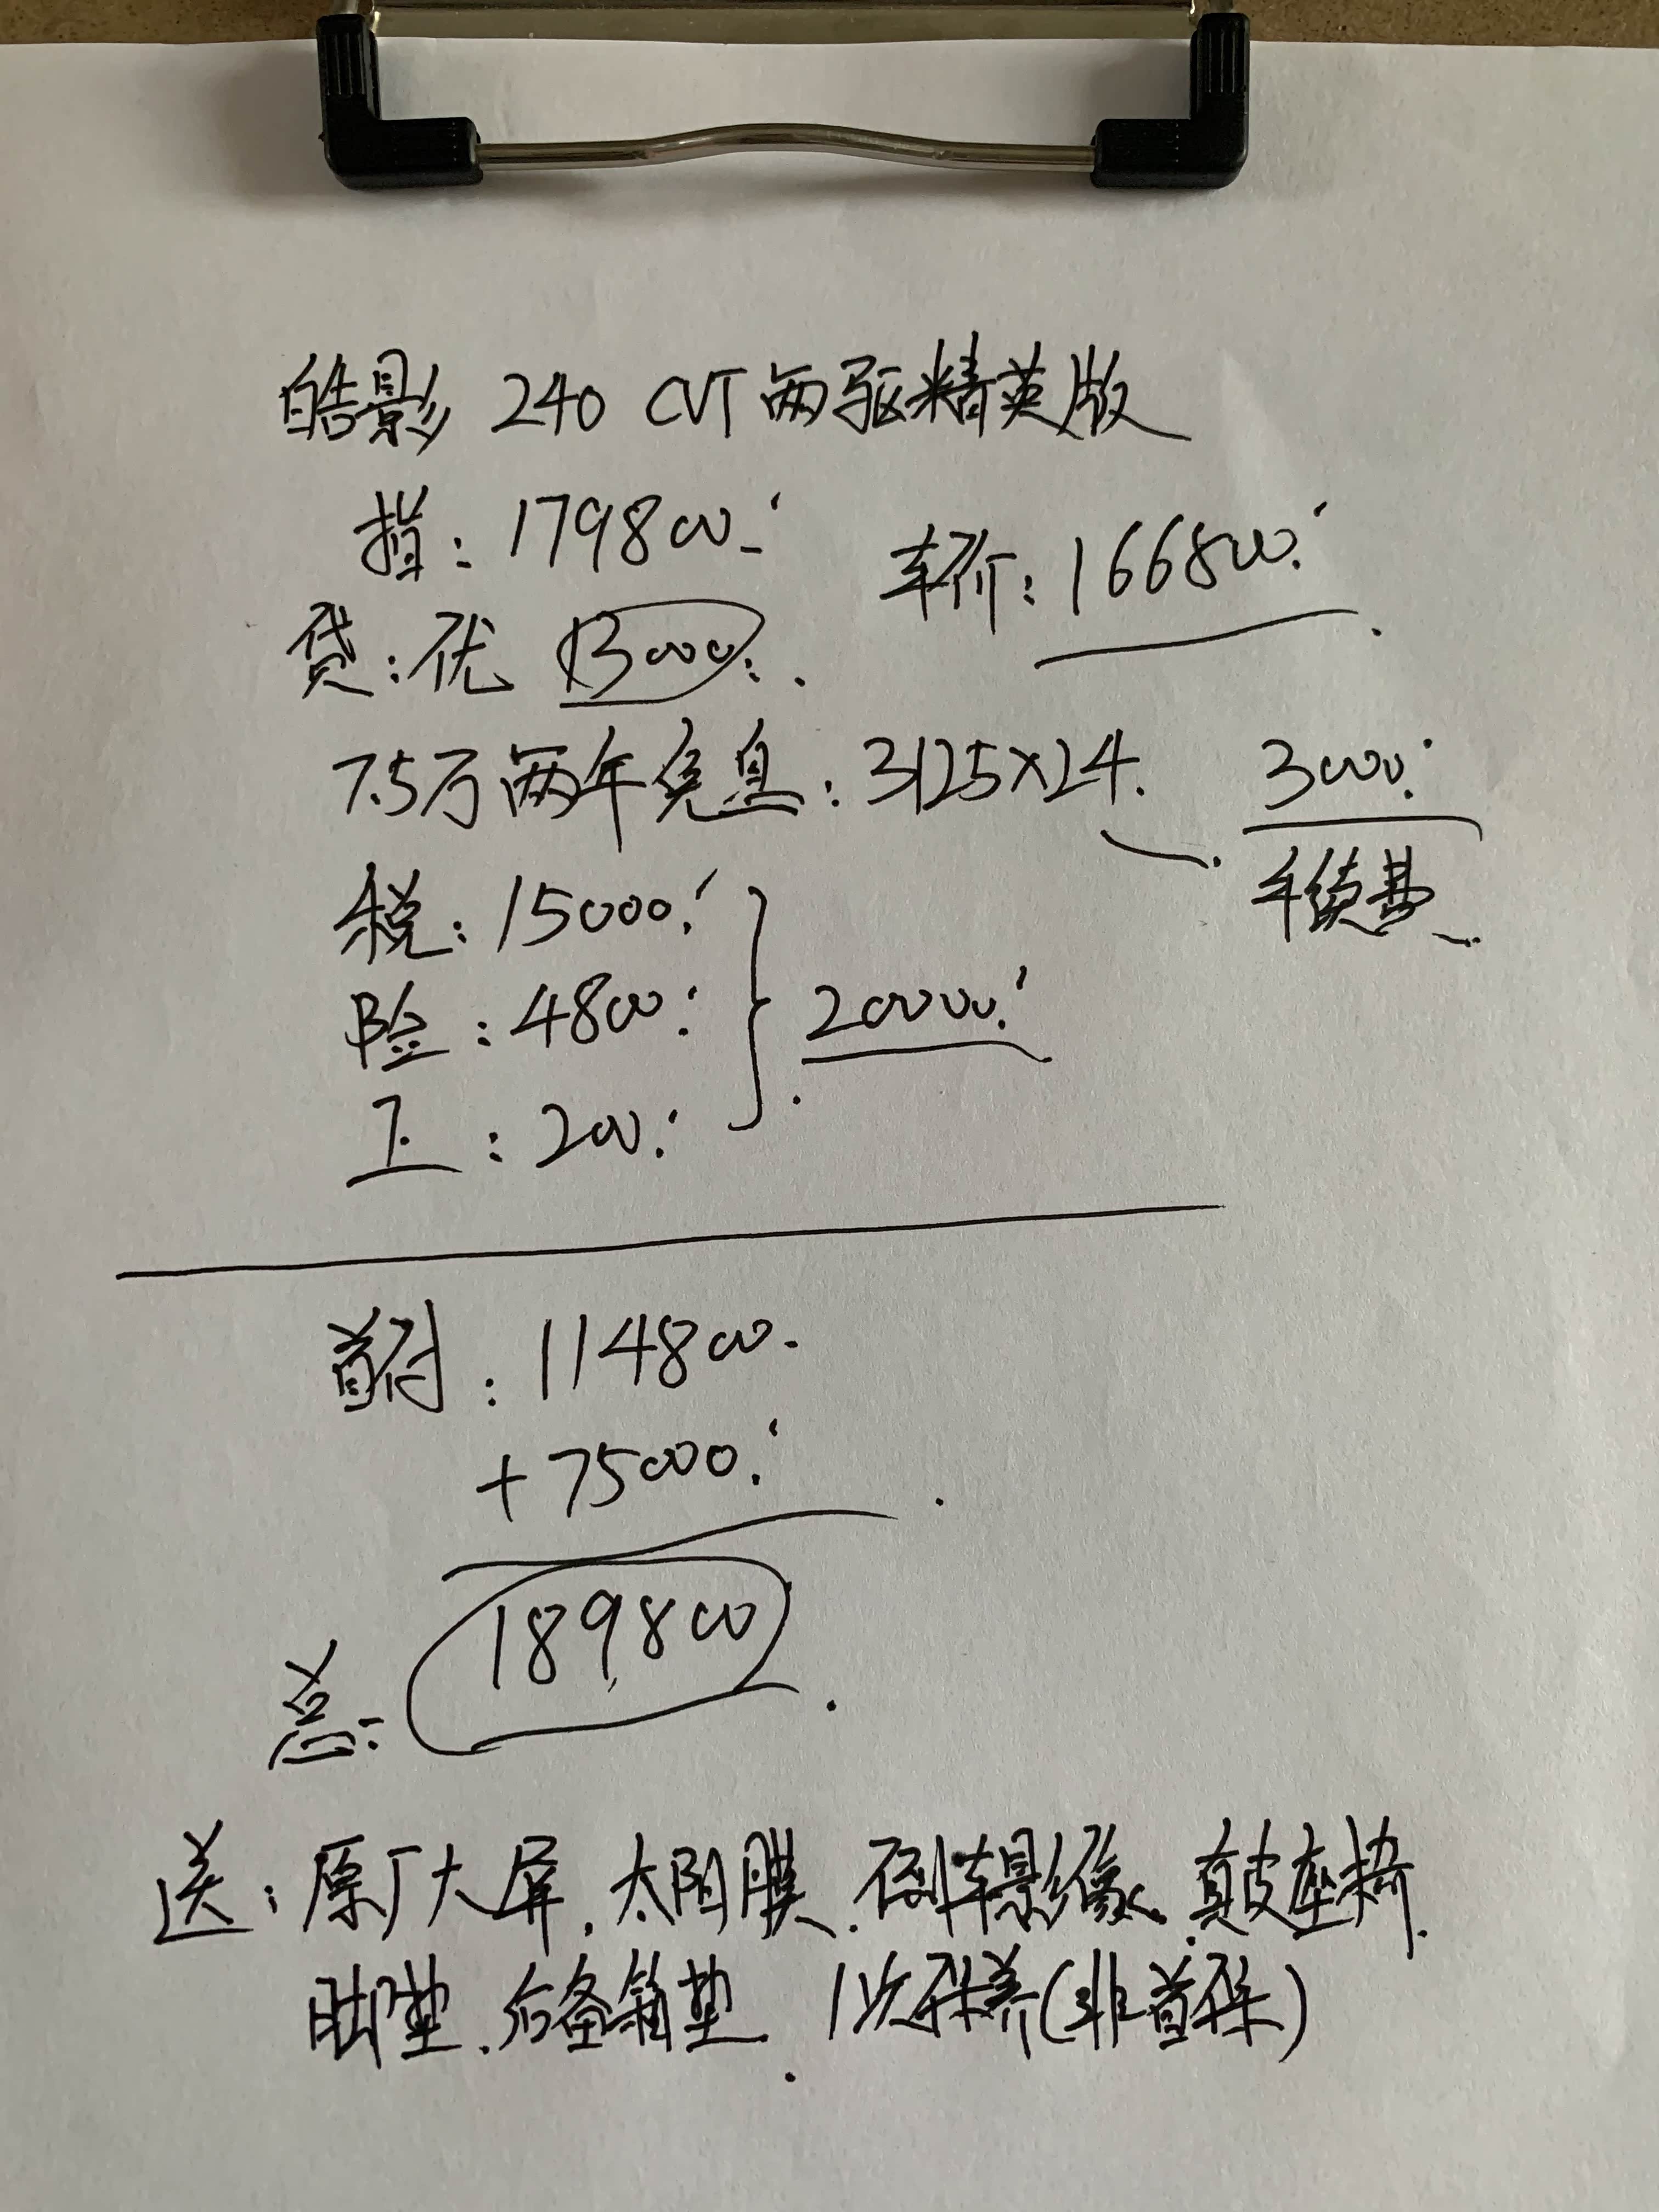 皓影 240 CVT 两驱精英版
指：179800.
车价：166800.
贷：优 13000.
7.5万两年免息：3125×24. 3000.
手续费
税：15000.
险：4800.
上：200.
20000.
首付：114800.
+75000.
总：189,800
送：原厂大屏.太阳膜.倒车影像.真皮座椅.
脚垫.后备箱垫.1次保养(非首保)